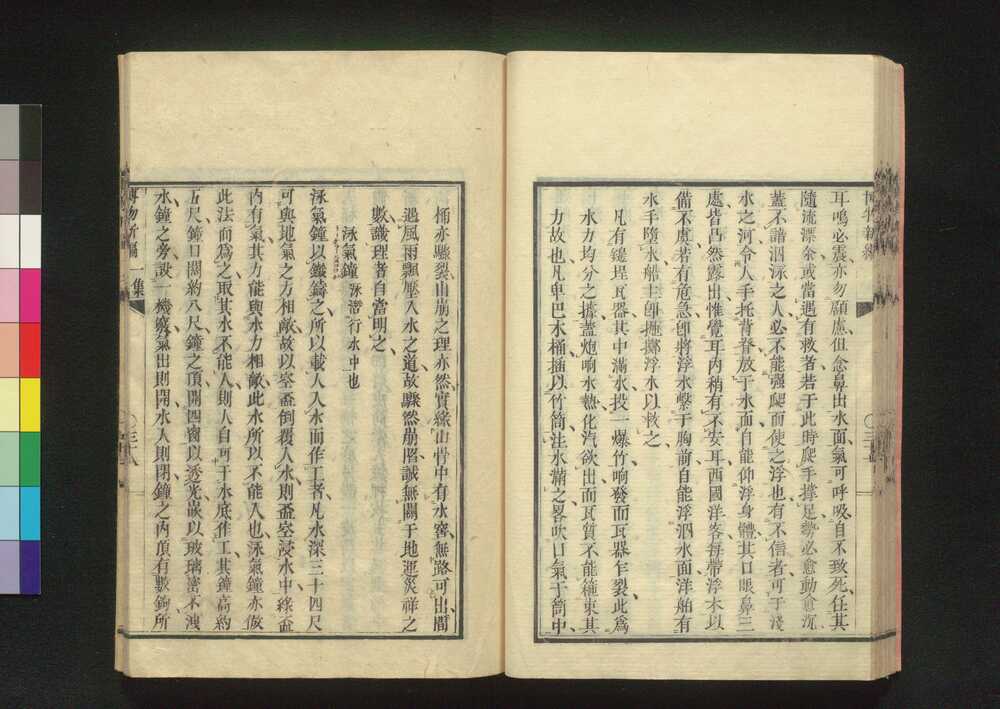 耳鳴必震亦勿顧慮但念鼻出水面氣可呼吸自不致死任其
隨流漂余或當遇有救者若于此時爬手撐足勢必愈動愈沉
蓋不諳泅泳之人必不能强爬而使之浮也有不信者可于淺
水之河令人手托背脊放于水面自能仰浮身體其口眼鼻三
處皆凸然露出惟覺耳內稍有不安耳西國洋客每帶浮木以
備不虞若有危急卽將浮水繫于胸前自能浮泅水面洋舶有
水手墮水船主卽拋擲浮水以救之
凡有磚埕瓦器其中滿水投一爆竹响發而瓦器乍裂此爲
水力均分之據蓋炮响水熱化汽欲出而瓦質不能箍束其
力故也凡卑巴水桶插以竹筒注水滿之畧吹口氣于筒中
桶亦驟裂山崩之理亦然實緣山骨中有水窖無路可出間
遇風雨飄壓入水之道故驟然崩陷誠無關于地運災祥之
數識理者自當明之
泳氣鐘 泳潛行水中也
泳氣鐘以鐵鑄之所以載人入水而作工者凡水深三十四尺
可與地氣之力相敵故以空盃倒覆入水則盃空浸水中緣盃
內有氣其力能與水力相敵此水所以不能入也泳氣鐘亦倣
此法而爲之取其水不能入則人自可于水底作工其鐘高約
五尺鐘口闊約八尺鐘之頂開四窗以透光嵌以玻璃密不洩
水鐘之旁設一機竅氣出則開水入則閉鐘之內頂有數鉤所
博物新編 一集
三十八